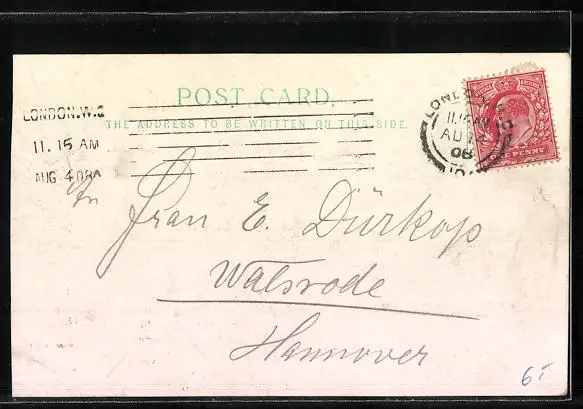 POST CARD.
THE ADDRESS TO BE WRITTEN ON THIS SIDE.
LONDON.W.C
11.15 AM
AUG 4 08A
LONDON
11.15 AM
AU
08
PENNY
An
Frau E. Dürkop
Walsrode
Hannover
6